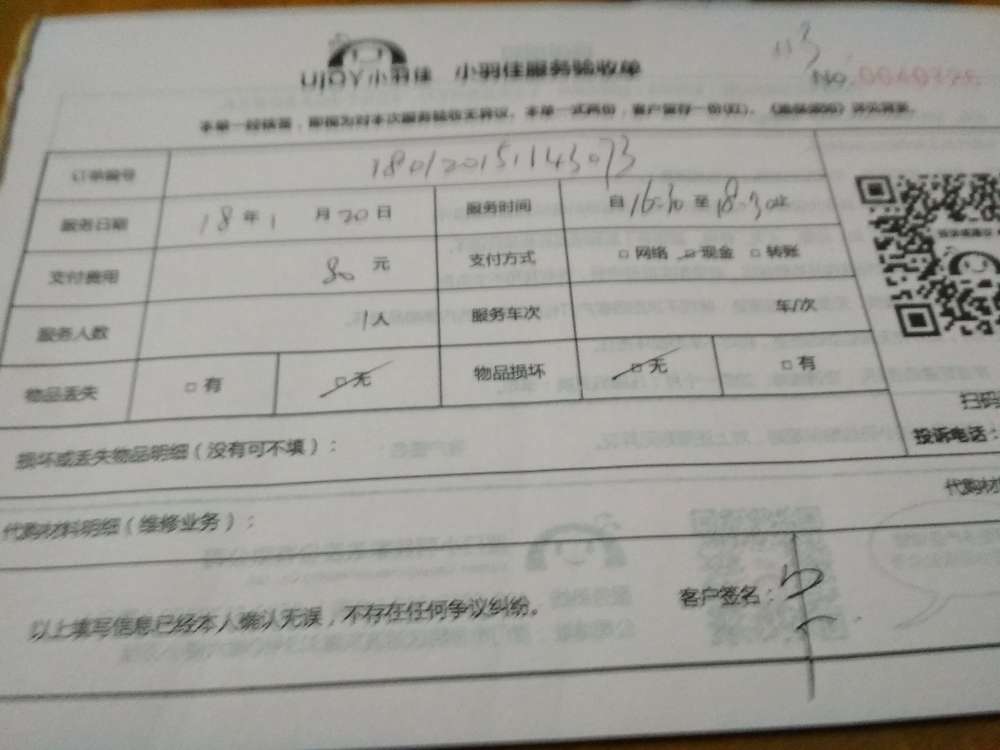 113
UJOY小羽佳 小羽佳服务验收单
No.
本单一经核签，即视为对本次服务验收无异议。本单一式两份，客户留存一份(红)。
订单编号 180120151143073
服务日期 18年1月20日 服务时间 自16:30至18:30止
支付费用 80元 支付方式 □网络 □现金 □转账
服务人数 1人 服务车次 车/次
物品丢失 □有 □无 物品损坏 □无 □有
扫码
损坏或丢失物品明细（没有可不填）： 投诉电话：
代购材料明细（维修业务）： 代购材
以上填写信息已经本人确认无误，不存在任何争议纠纷。 客户签名：